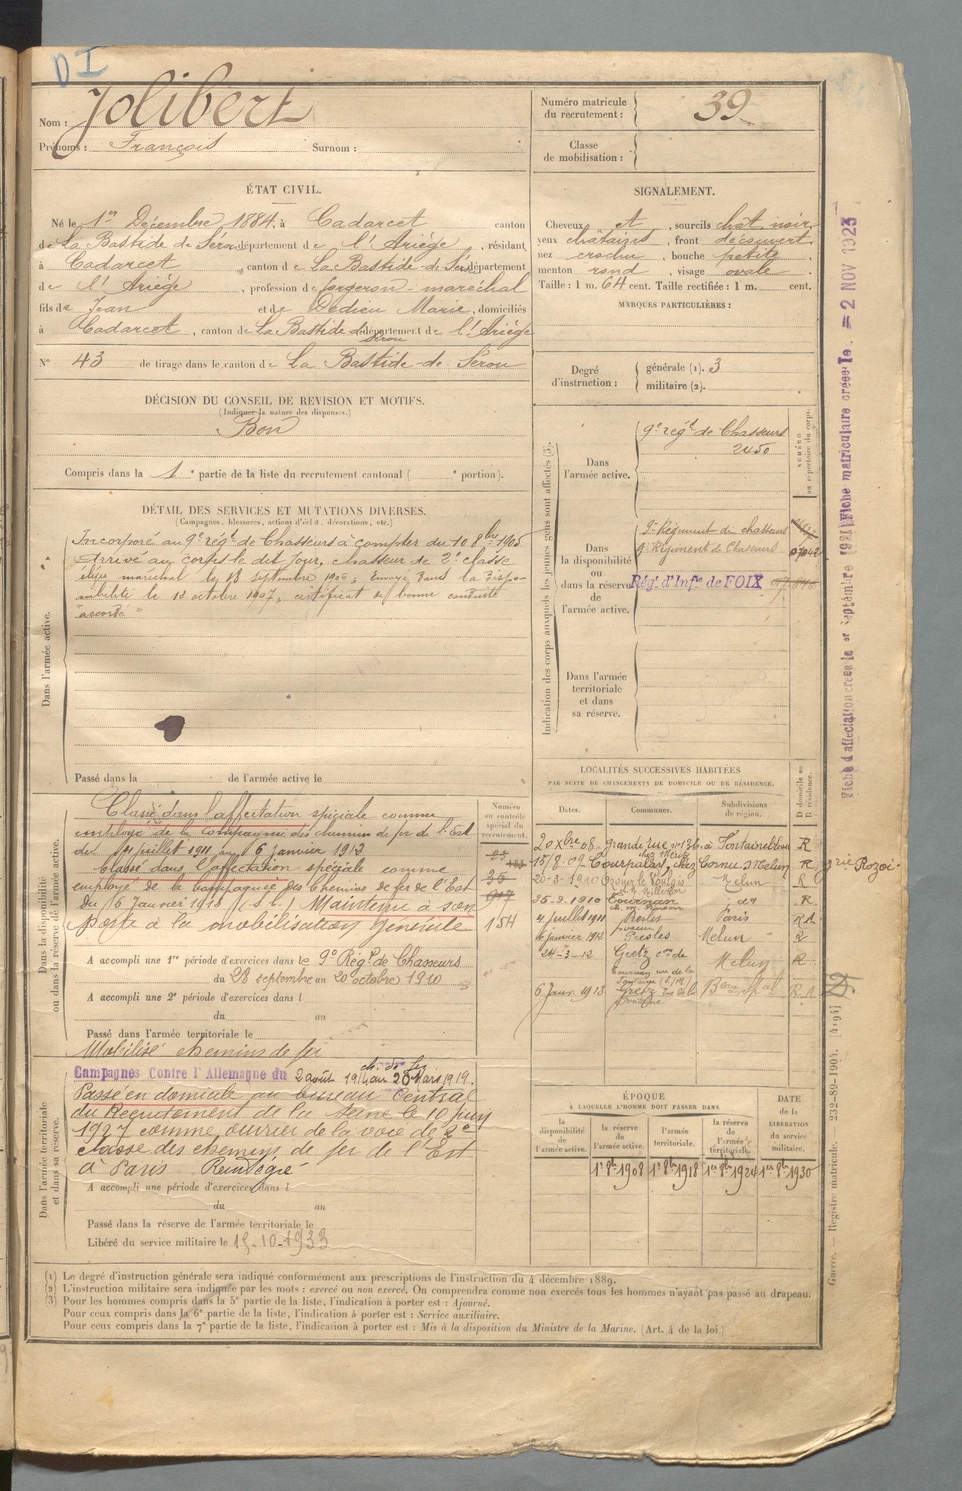 DI
Nom : Jolibert
Prénoms : François Surnom :
Numéro matricule du recrutement : 39
Classe de mobilisation :
ÉTAT CIVIL.
Né le 1er Décembre 1884, à Cadarcet canton
de La Bastide de Sérou département de l'Ariége, résidant
à Cadarcet, canton de La Bastide de Sérou département
de l'Ariége, profession de forgeron-maréchal
fils de Jean et de Dedieu Marie, domiciliés
à Cadarcet, canton de La Bastide de Sérou département de l'Ariége
N° 43 de tirage dans le canton de La Bastide-de Sérou
SIGNALEMENT.
Cheveux et, sourcils chât noir
yeux châtaigns, front découvert
nez crochu, bouche petite,
menton rond, visage ovale.
Taille : 1 m. 64 cent. Taille rectifiée : 1 m. cent.
MARQUES PARTICULIÈRES :
Degré d'instruction : générale (1). 3
militaire (2).
DÉCISION DU CONSEIL DE REVISION ET MOTIFS.
(Indiquer la nature des dispenses.)
Bon
Compris dans la 1e partie de la liste du recrutement cantonal ( e portion).
DÉTAIL DES SERVICES ET MUTATIONS DIVERSES.
(Campagnes, blessures, actions d'éclat, décorations, etc.)
Dans l'armée active.
Incorporé au 9e régt de Chasseurs à compter du 10 8bre 1905
Arrivé au corps le dit jour, chasseur de 2e classe
maréchal le 18 septembre 1906; Envoyé dans la dispo-
nibilité le 12 octobre 1907; certificat de bonne conduite
"accordé"
Passé dans la de l'armée active le
Indication des corps auxquels les jeunes gens sont affectés (3).
NUMÉRO au répertoire du corps.
Dans l'armée active.
9e régt de Chasseurs
2450
Dans la disponibilité ou dans la réserve de l'armée active.
9e Régiment de chasseurs
9e Régiment de Chasseurs
Rég. d'Infie de FOIX
Dans l'armée territoriale et dans sa réserve.
Dans la disponibilité ou dans la réserve de l'armée active.
Numéro au contrôle spécial du recrutement.
Classé dans l'affectation spéciale comme
employé de la Compagnie des chemins de fer de l'Est
du 4 juillet 1911 au 6 janvier 1912
Classé dans l'affectation spéciale comme
employé de la Compagnie des Chemins de fer de l'Est
du 6 Janvier 1913 (S.L.) Maintenu à son
poste à la mobilisation générale
35
917
154
A accompli une 1re période d'exercices dans le 9e Régt de Chasseurs
du 28 septembre au 20 octobre 1910
A accompli une 2e période d'exercices dans l
du au
Passé dans l'armée territoriale le
Mobilisé chemins de fer
LOCALITÉS SUCCESSIVES HABITÉES
PAR SUITE DE CHANGEMENTS DE DOMICILE OU DE RÉSIDENCE.
Dates. Communes. Subdivisions de région. D domicile ou R résidence.
20 Xbre 08 Grande rue n° 136 à Fontainebleau R
15/8-09 Courpalay, chez Cornu Melun R
20-3-1910 Melun R
25-2-1910 Tournan R
4 juillet 1911 Presles Paris RA
6 janvier 1912 Presles Melun R
24-3-12 Gretz Melun R
6 Janv. 1913 Gretz RA
Dans l'armée territoriale et dans sa réserve.
Campagnes Contre l'Allemagne du 2 août 1914 au 20 Mars 1919.
ch. de fer
Passé en domicile au bureau Central
du Recrutement de la Seine le 10 juin
1927 comme ouvrier de la voie de 2e
classe des chemins de fer de l'Est
à Paris. Réintégré
A accompli une période d'exercices dans l
du au
Passé dans la réserve de l'armée territoriale le
Libéré du service militaire le 15-10-1933
ÉPOQUE
À LAQUELLE L'HOMME DOIT PASSER DANS
DATE de la LIBÉRATION du service militaire.
la disponibilité de l'armée active.
la réserve de l'armée active.
l'armée territoriale.
la réserve de l'armée territoriale.
1r 8b 1908 1r 8b 1918 1er 8b 1924 1er 8b 1930
(1) Le degré d'instruction générale sera indiqué conformément aux prescriptions de l'instruction du 4 décembre 1889.
(2) L'instruction militaire sera indiquée par les mots : exercé ou non exercé. On comprendra comme non exercés tous les hommes n'ayant pas passé au drapeau.
(3) Pour les hommes compris dans la 5e partie de la liste, l'indication à porter est : Ajourné.
Pour ceux compris dans la 6e partie de la liste, l'indication à porter est : Service auxiliaire.
Pour ceux compris dans la 7e partie de la liste, l'indication à porter est : Mis à la disposition du Ministre de la Marine. (Art. 4 de la loi)
Fiche d'affectation créée le 1er Septembre 1921 Fiche matriculaire créée le = 2 NOV 1923
Rozoi
D.
Guerre. — Registre matricule. 232-89-1904. [4194]